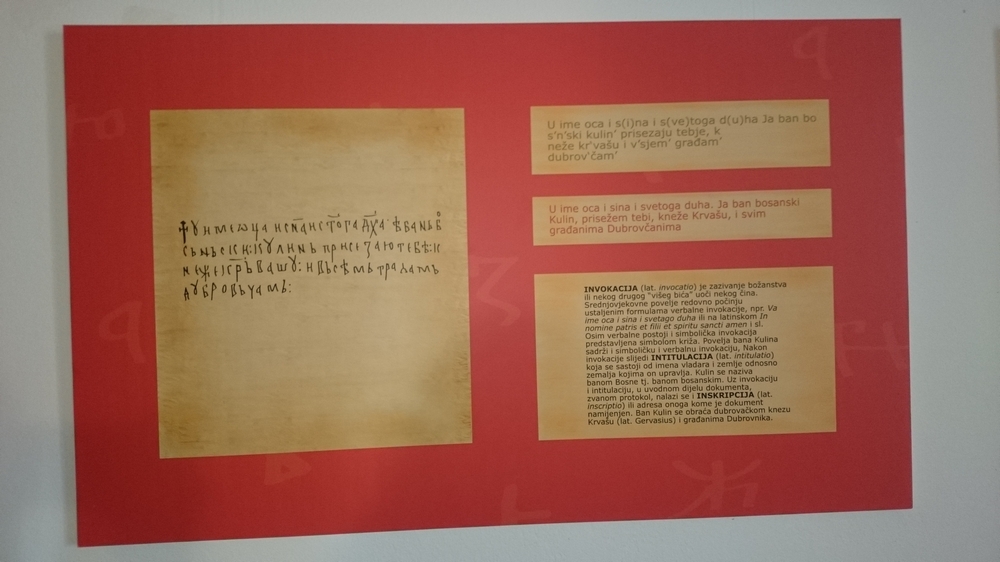 U ime oca i s(i)na i s(ve)toga d(u)ha Ja ban bo
s'n'ski kulin' prisezaju tebje, k
neže kr'vašu i v'sjem' građam'
dubrov'čam'
U ime oca i sina i svetoga duha. Ja ban bosanski
Kulin, prisežem tebi, kneže Krvašu, i svim
građanima Dubrovčanima
INVOKACIJA (lat. invocatio) je zazivanje božanstva
ili nekog drugog "višeg bića" uoči nekog čina.
Srednjovjekovne povelje redovno počinju
ustaljenim formulama verbalne invokacije, npr. Va
ime oca i sina i svetago duha ili na latinskom In
nomine patris et filii et spiritu sancti amen i sl.
Osim verbalne postoji i simbolička invokacija
predstavljena simbolom križa. Povelja bana Kulina
sadrži i simboličku i verbalnu invokaciju, Nakon
invokacije slijedi INTITULACIJA (lat. intitulatio)
koja se sastoji od imena vladara i zemlje odnosno
zemalja kojima on upravlja. Kulin se naziva
banom Bosne tj. banom bosanskim. Uz invokaciju
i intitulaciju, u uvodnom dijelu dokumenta,
zvanom protokol, nalazi se i INSKRIPCIJA (lat.
inscriptio) ili adresa onoga kome je dokument
namijenjen. Ban Kulin se obraća dubrovačkom knezu
Krvašu (lat. Gervasius) i građanima Dubrovnika.